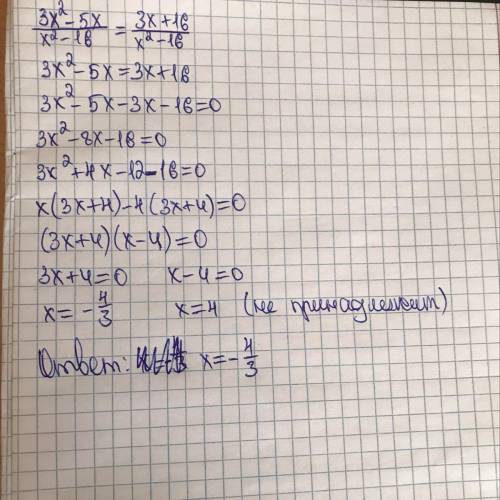 3x²-5x / x²-16 = 3x+16 / x²-16
3x²-5x=3x+16
3x²-5x-3x-16=0
3x²-8x-16=0
3x²+4x-12-16=0
x(3x+4)-4(3x+4)=0
(3x+4)(x-4)=0
3x+4=0 x-4=0
x=-4/3 x=4 (не принадлежит)
Ответ: x=-4/3